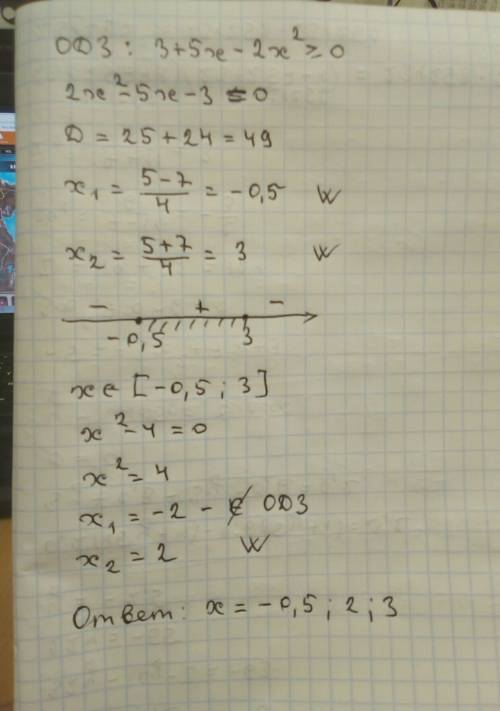 ОДЗ: 3+5x-2x² ≥ 0
2x²-5x-3 ≤ 0
D = 25+24 = 49
x₁ = (5-7)/4 = -0,5 W
x₂ = (5+7)/4 = 3 W
- + -
-0,5 3
x ∈ [-0,5 ; 3]
x²-4 = 0
x² = 4
x₁ = -2 - ∉ ОДЗ
x₂ = 2 W
Ответ: x = -0,5 ; 2 ; 3